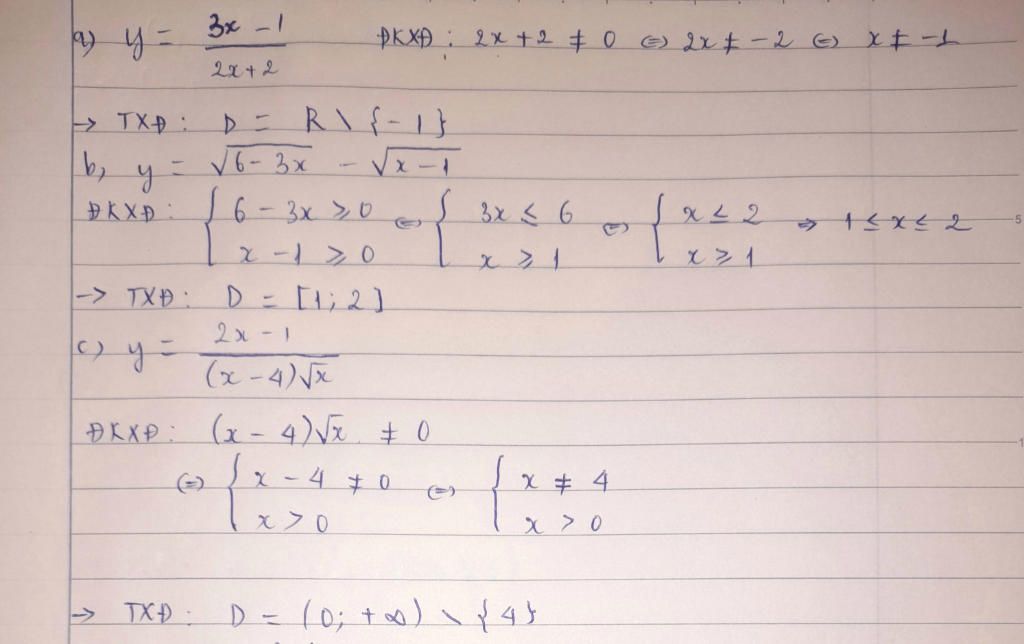 a) y = (3x - 1)/(2x + 2) ĐKXĐ : 2x + 2 ≠ 0 ⇔ 2x ≠ -2 ⇔ x ≠ -1
→ TXĐ : D = R \ {-1}
b, y = √(6 - 3x) - √(x - 1)
ĐKXĐ : { 6 - 3x ≥ 0 ; x - 1 ≥ 0 ⇔ { 3x ≤ 6 ; x ≥ 1 ⇔ { x ≤ 2 ; x ≥ 1 ⇒ 1 ≤ x ≤ 2
→ TXĐ : D = [1; 2]
c) y = (2x - 1)/((x - 4)√x)
ĐKXĐ : (x - 4)√x ≠ 0
⇔ { x - 4 ≠ 0 ; x > 0 ⇔ { x ≠ 4 ; x > 0
→ TXĐ : D = (0; +∞) \ {4}